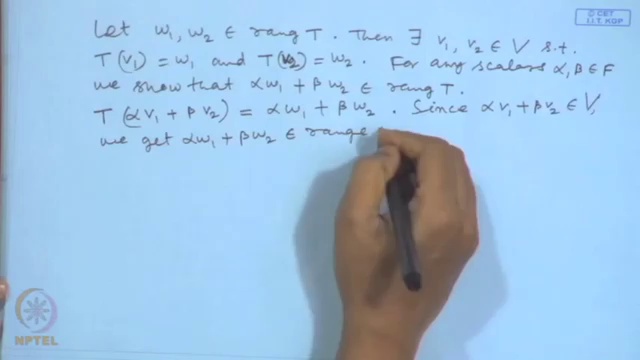 © CET
I.I.T. KGP
Let w₁, w₂ ∈ rang T. Then ∃ v₁, v₂ ∈ V s.t.
T(v₁) = w₁ and T(v₂) = w₂. For any scalars α, β ∈ F
we show that αw₁ + βw₂ ∈ rang T.
T(αv₁ + βv₂) = αw₁ + βw₂. Since αv₁ + βv₂ ∈ V,
we get αw₁ + βw₂ ∈ range
NPTEL